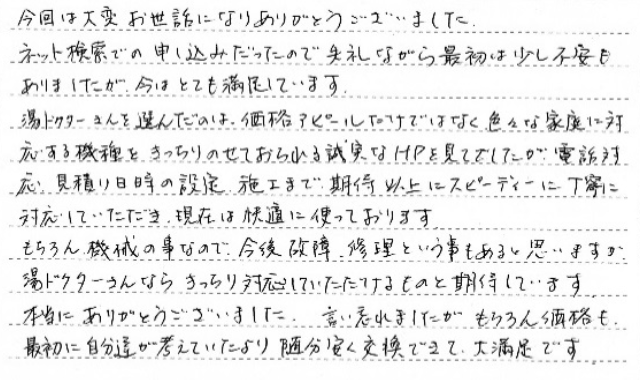 今回は大変お世話になりありがとうございました.
ネット検索での申し込みだったので失礼ながら最初は少し不安も
ありましたが、今はとても満足しています.
湯ドクターさんを選んだのは、価格アピールだけではなく色々な家庭に対
応する機種をきっちりのせておられる誠実なHPを見てでしたが、電話対
応、見積り日時の設定、施工まで期待以上にスピーディーに丁寧に
対応していただき、現在は快適に使っております
もちろん機械の事なので、今後故障、修理という事もあると思いますが、
湯ドクターさんならきっちり対応していただけるものと期待しています
本当にありがとうございました. 言い忘れましたがもちろん価格も、
最初に自分達が考えていたより随分安く交換できて、大満足です